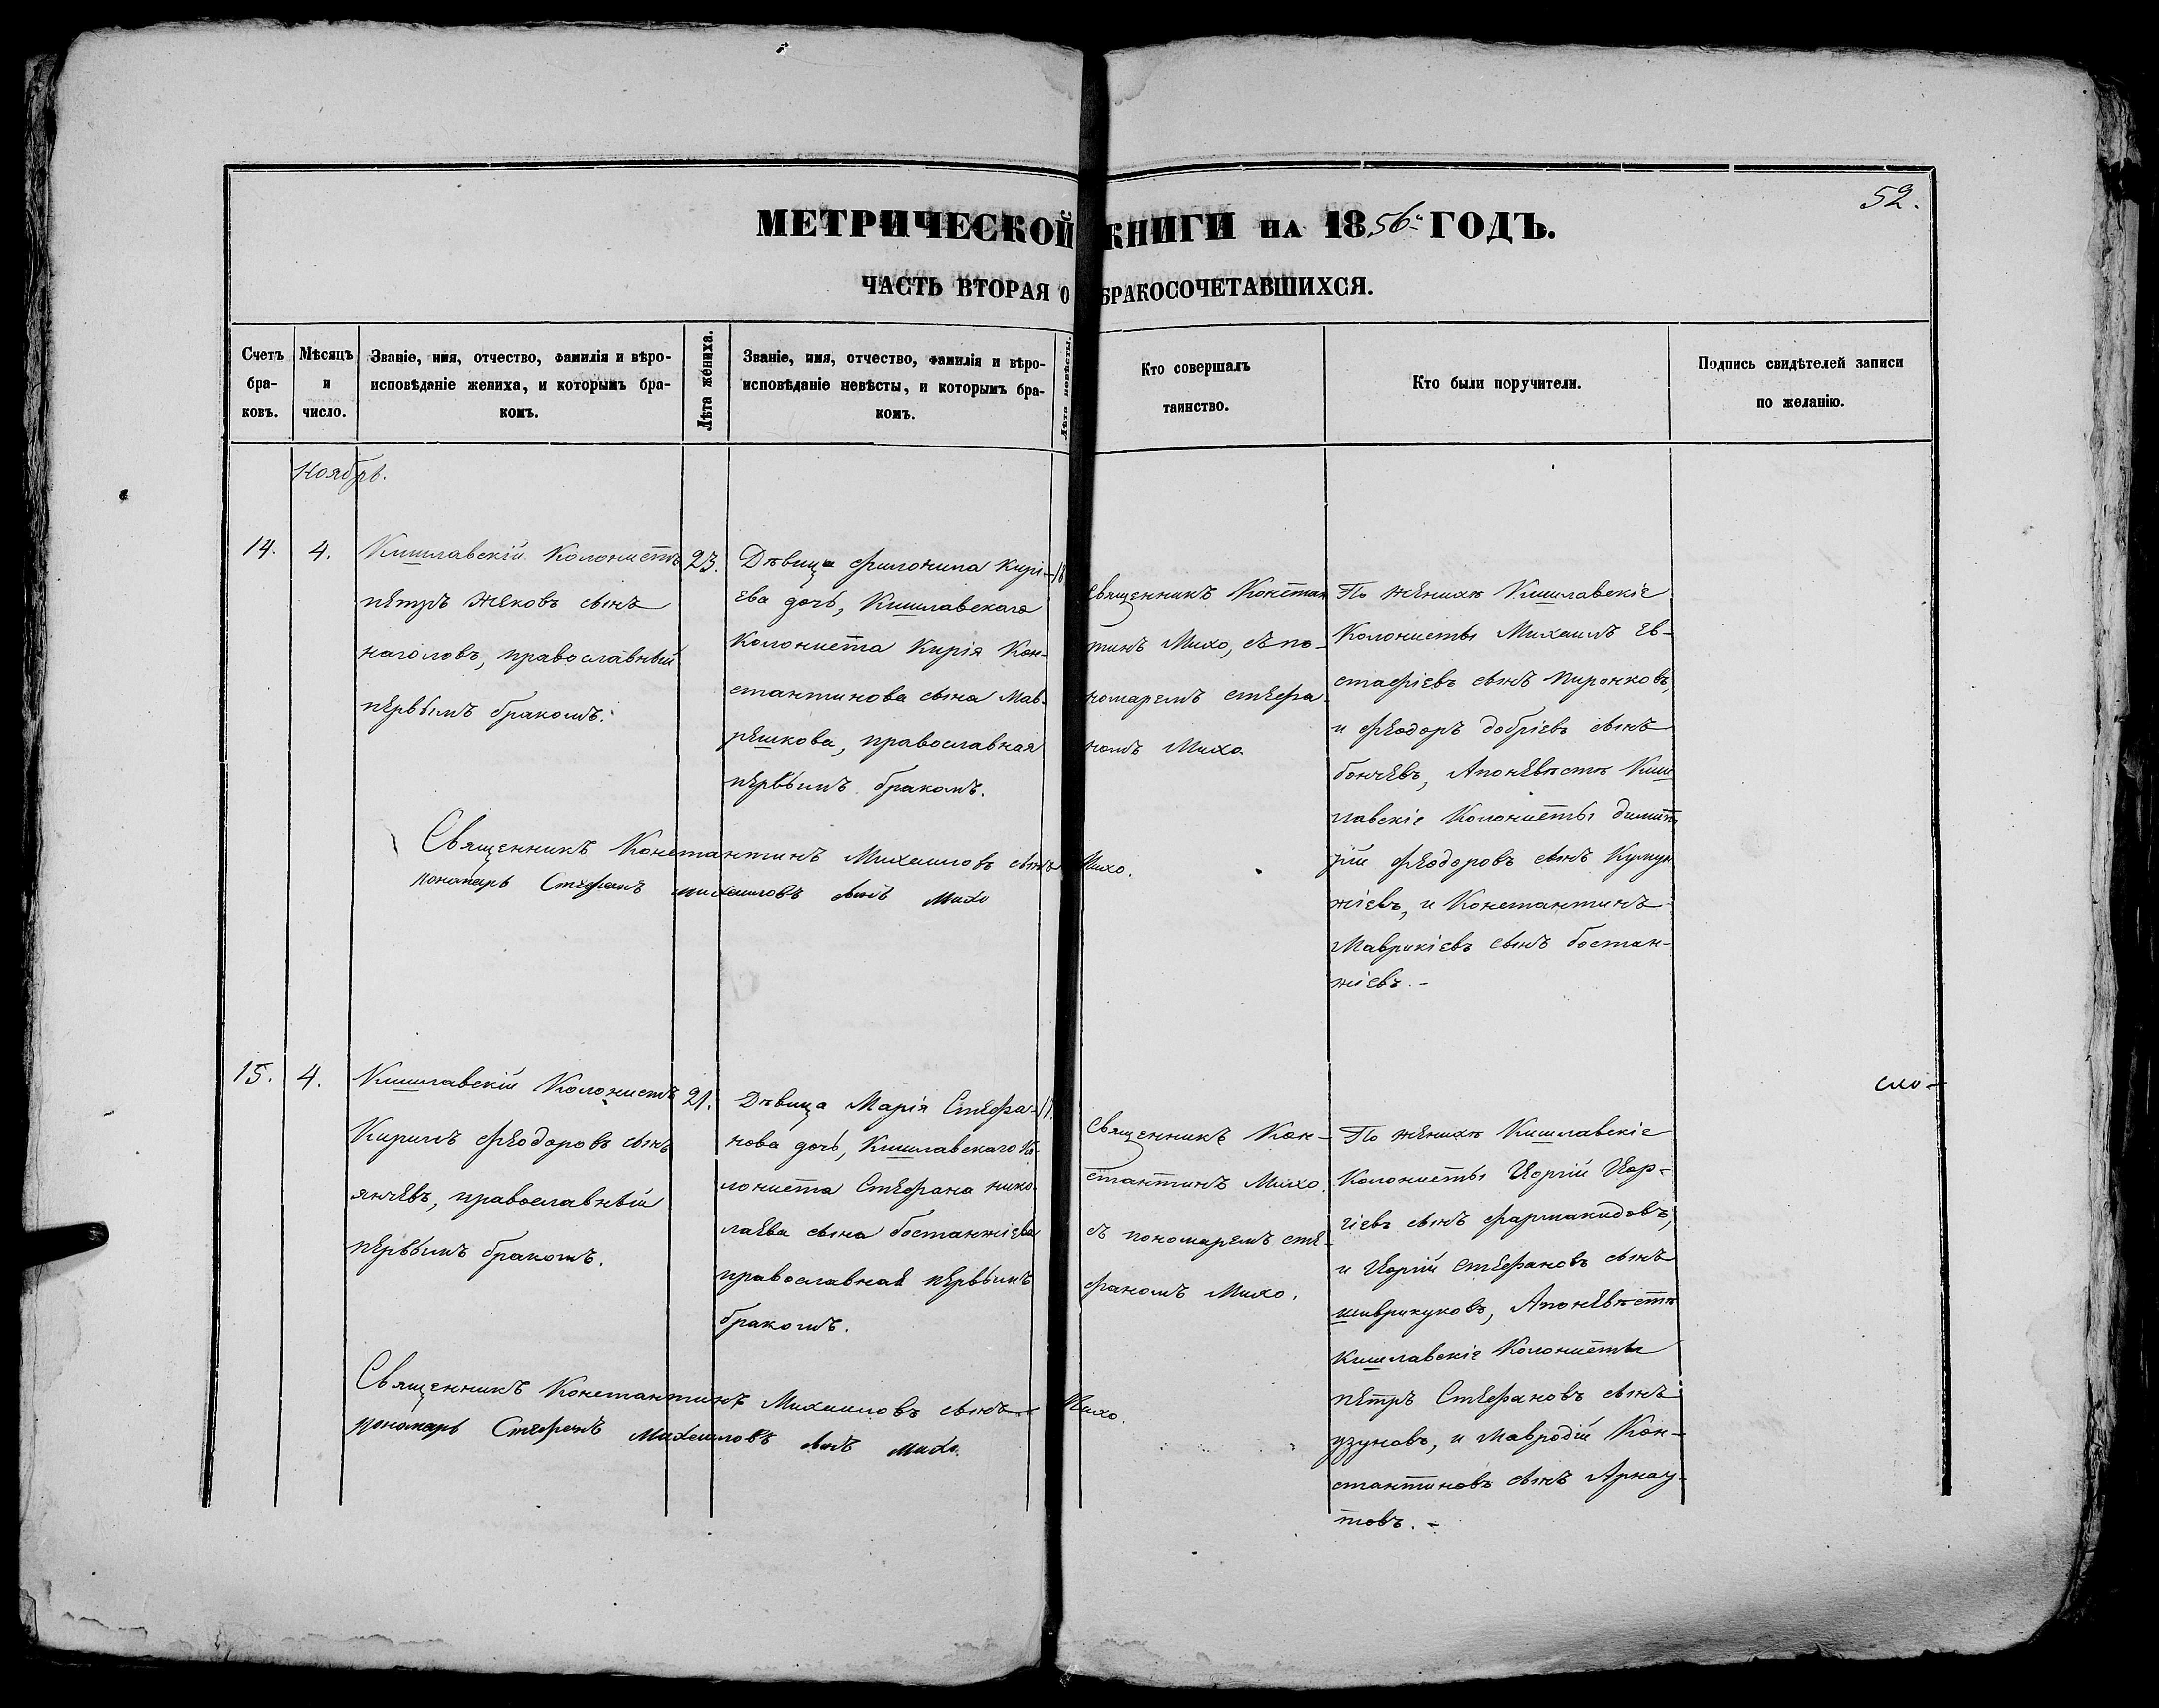 52.
МЕТРИЧЕСКОЙ КНИГИ НА 1856й ГОДЪ.
ЧАСТЬ ВТОРАЯ О БРАКОСОЧЕТАВШИХСЯ.
Счетъ
бра-
ковъ.
Мѣсяцъ
и
число.
Званіе, имя, отчество, фамилія и вѣро-
исповѣданіе жениха, и которымъ бра-
комъ.
Лѣта жениха.
Званіе, имя, отчество, фамилія и вѣро-
исповѣданіе невѣсты, и которымъ бра-
комъ.
Лѣта невѣсты.
Кто совершалъ
таинство.
Кто были поручители.
Подпись свидѣтелей записи
по желанію.
Ноябрь.
14.
4.
Кишлавскій Колонистъ
пЕтръ Жековъ сынъ
наголовъ, православный
пЕрвымъ бракомъ.
23.
Дѣвица Филонила Кирі-
Ева дочь, Кишлавскаго
Колониста Кирія Кон-
стантинова сына Мав-
рЕшкова, православная
пЕрвымъ бракомъ.
18.
Священникъ Констан
тинъ Михо, съ по-
номаремъ стЕфа-
номъ Михо.
По жЕнихѣ Кишлавскіе
Колонисты Михаилъ Ев-
стафіевъ сынъ Пиронковъ,
и ФЕодоръ добріевъ сынъ
бончЕвъ, АпонЕвѣстѣ Киш
лавскіе Колонисты димит
рій ФЕодоровъ сынъ Кумун
жіевъ, и Константинъ
Маврикіевъ сынъ бостан-
жіевъ. -
Священникъ Константинъ Михаиловъ сынъ Михо.
пономарь Стефанъ михаиловъ сынъ михо
15.
4.
Кишлавскій Колонистъ
Кирилъ ФЕодоровъ сынъ
янчЕвъ, православный
пЕрвымъ бракомъ.
21.
Дѣвица Марія СтЕфа-
нова дочь, Кишлавскаго Ко-
лониста СтЕфана нико-
лаЕва сына бостанжіева
православная пЕрвымъ
бракомъ.
17.
Священникъ Кон-
стантинъ Михо,
съ пономаремъ стЕ-
фаномъ Михо.
По жЕнихѣ Кишлавскіе
Колонисты ГЕоргій ГЕор-
гіевъ сынъ фармакидовъ,
и ГЕоргій стЕфановъ сынъ
шиврикуковъ, АпонЕвѣстѣ
Кишлавскіе Колонисты
пЕтръ СтЕфановъ сынъ
узуновъ, и Мавродій Кон-
стантиновъ сынъ Арнау-
товъ. -
Священникъ Константинъ Михаиловъ сынъ Михо.
пономарь Стефанъ михаиловъ сынъ михо.